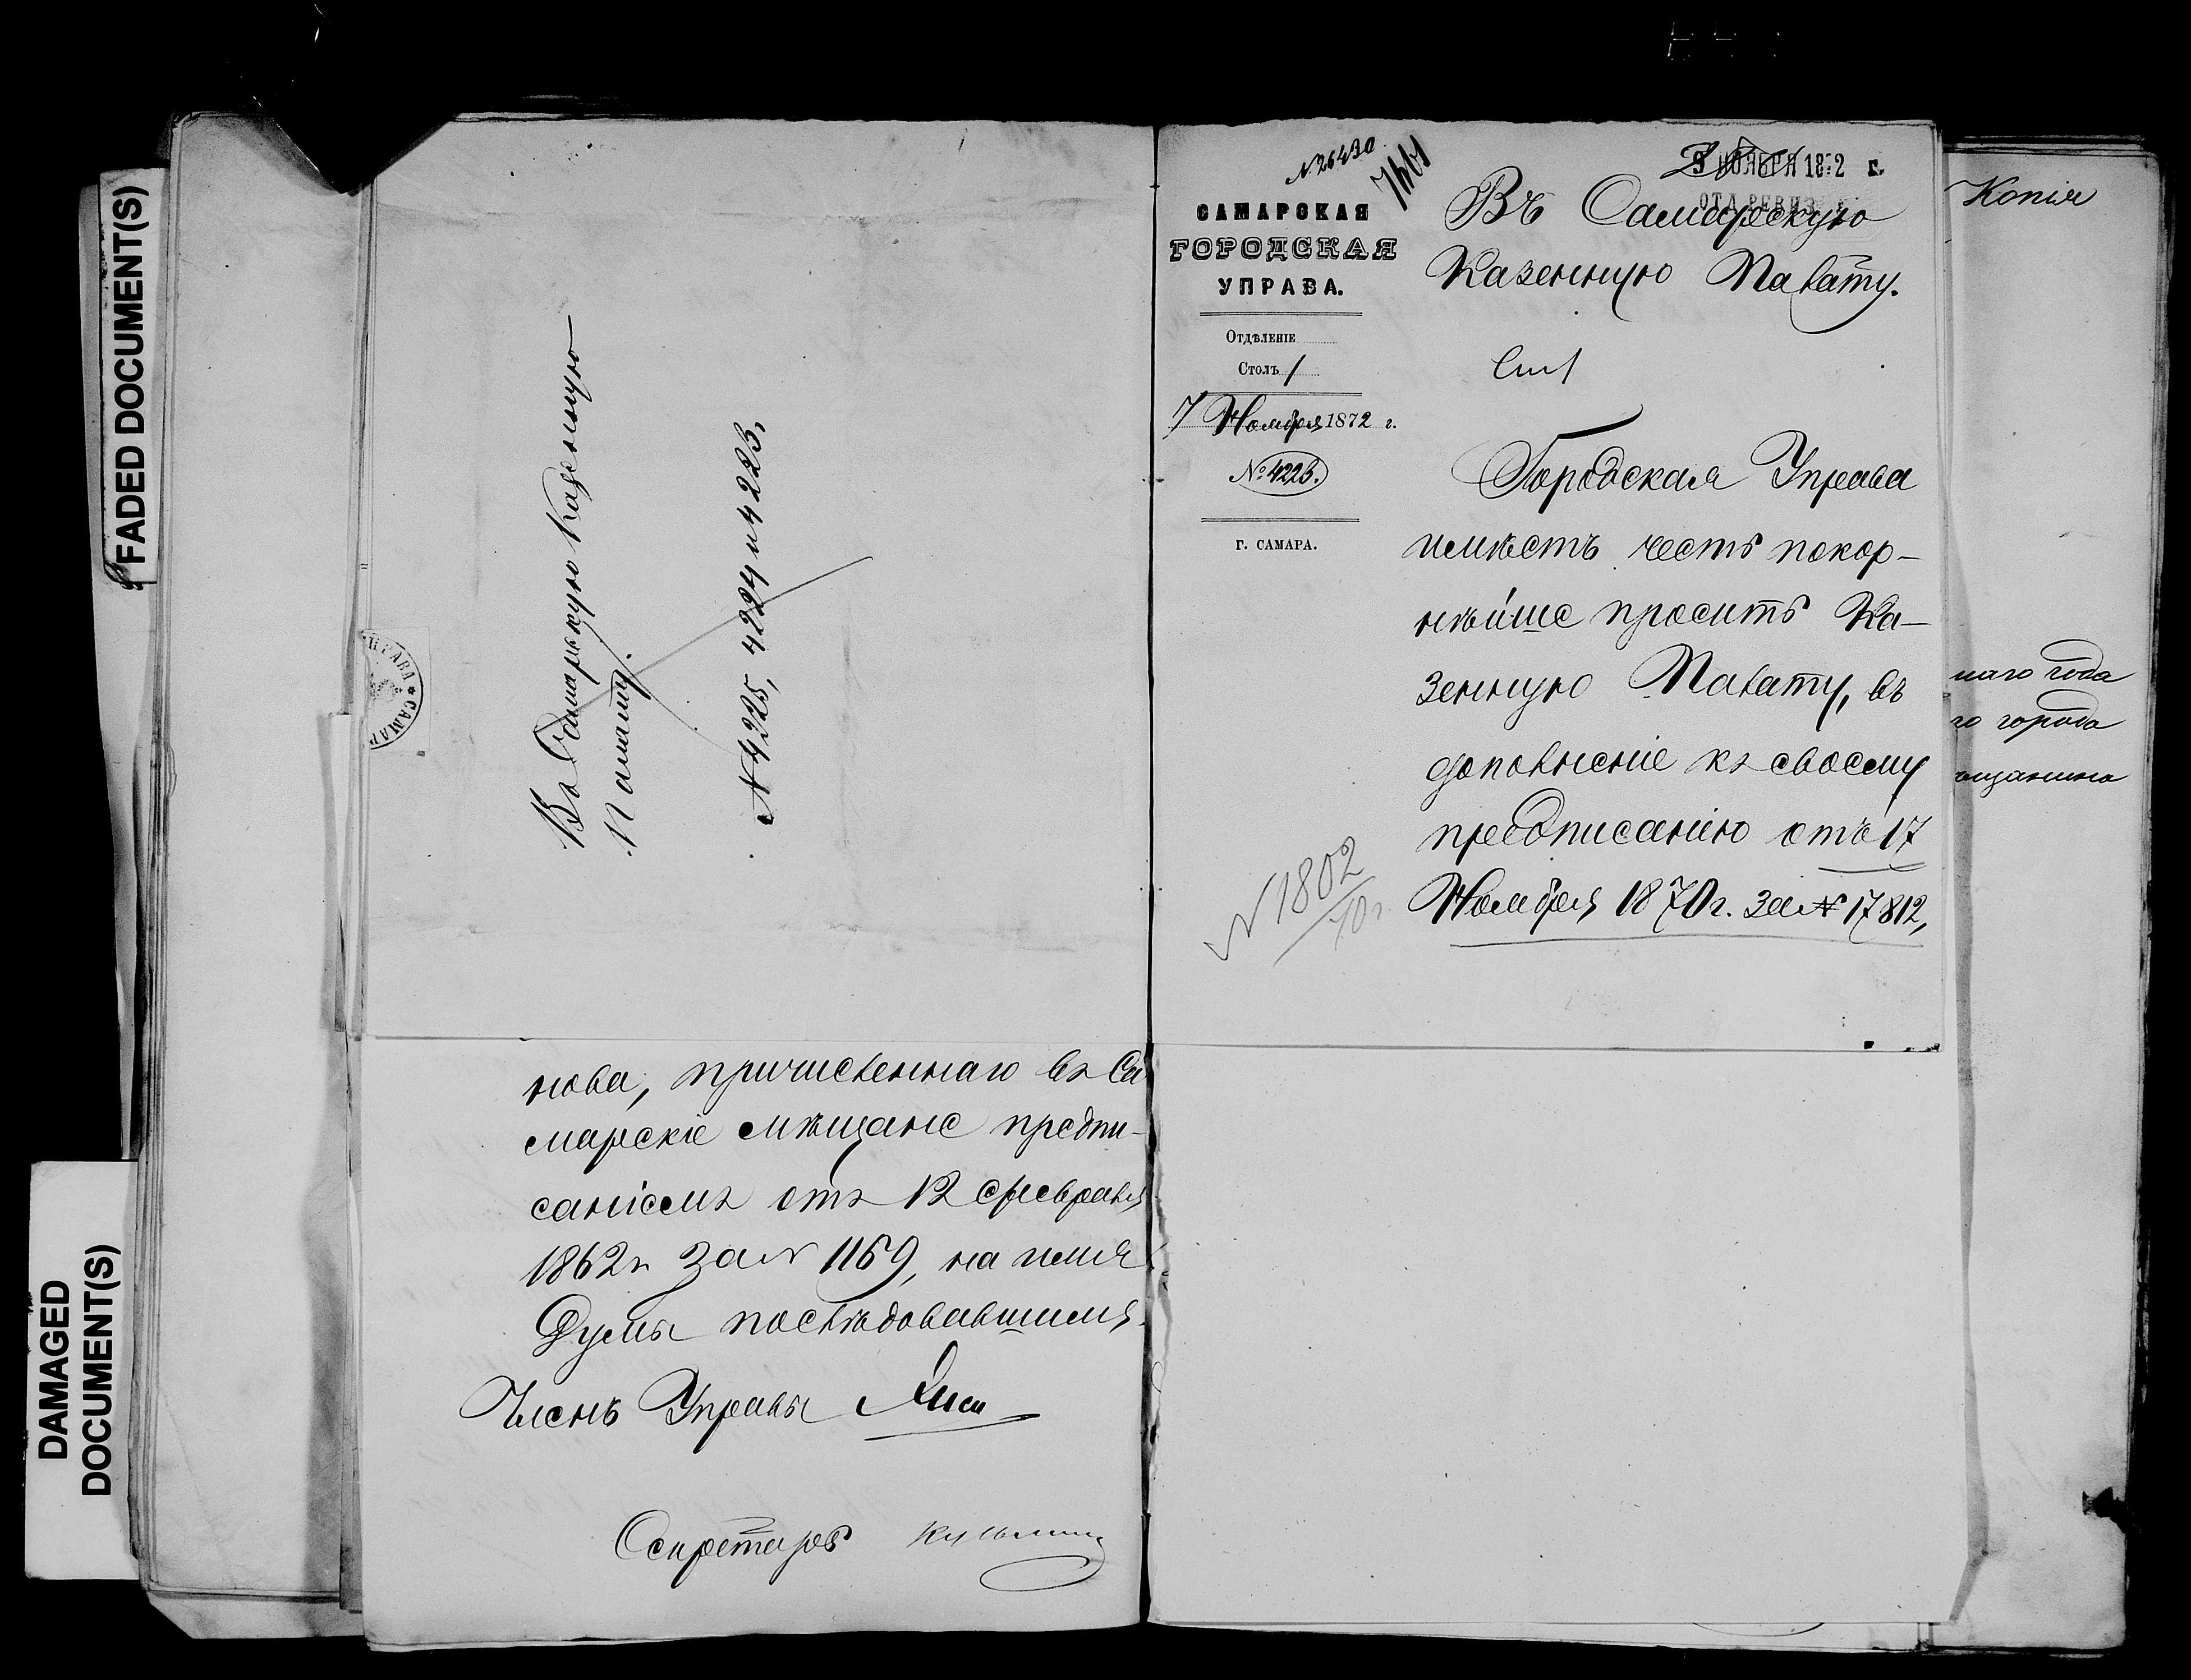 FADED DOCUMENT(S)
DAMAGED
DOCUMENT(S)
Въ Самарскую Казенную
Палату.
№ 4225, 4224 и 4223,
УПРАВА * САМАР
нова, причисленнаго въ Са
марскіе мѣщане предпи-
саніемъ отъ 12 февраля
1862 г. за № 1169, на имя
Думы послѣдовавшимъ.
Членъ Управы
Секретарь
№ 26430
САМАРСКАЯ
ГОРОДСКАЯ
УПРАВА.
Отдѣленіе
Столъ 1
7 Ноября 1872 г.
№ 4223.
Г. САМАРА.
9 НОЯБРЯ 1872 г.
ОТД. РЕВИЗ
Въ Самарскую
Казенную Палату.
Городская Управа
имѣетъ честь покор-
нѣйше проситъ Ка-
зенную Палату, въ
дополненіе къ своему
предписанію отъ 17
Ноября 1870 г. за № 17812,
№ 1802
70 г.
Копія
наго года
го города
ѣщанина